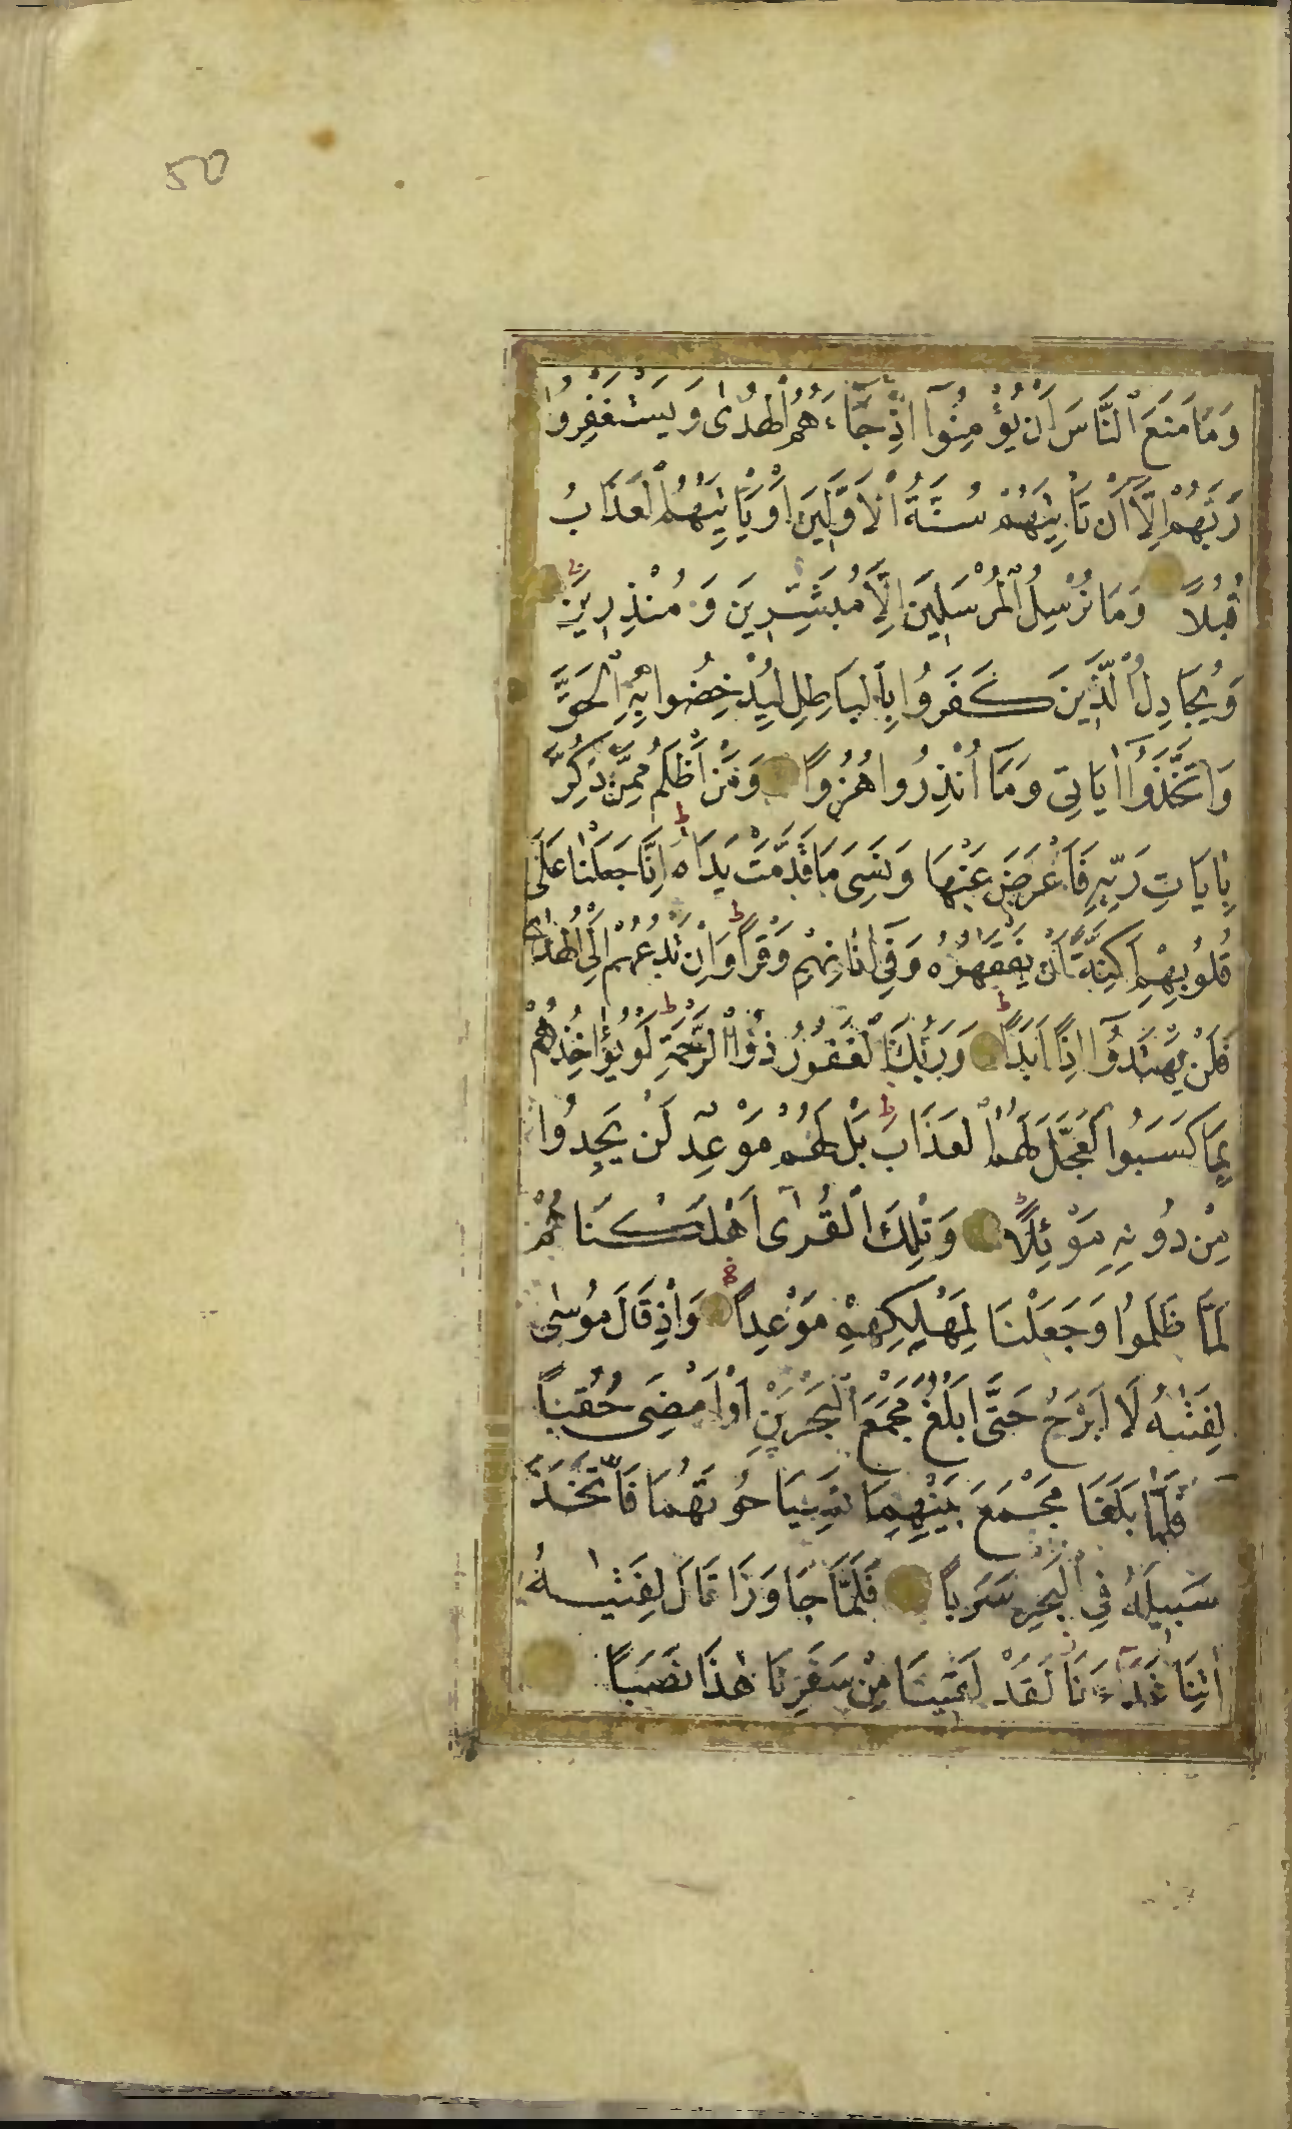 50
وَمَا مَنَعَ ٱلنَّاسَ اَنْ يُؤْمِنُوٓا اِذْ جَٓاءَهُمُ ٱلْهُدٰى وَيَسْتَغْفِرُوا
رَبَّهُمْ اِلَّٓا اَنْ تَأْتِيَهُمْ سُنَّةُ ٱلْاَوَّلِينَ اَوْ يَأْتِيَهُمُ ٱلْعَذَابُ
قُبُلًا وَمَا نُرْسِلُ ٱلْمُرْسَلِينَ اِلَّا مُبَشِّرِينَ وَمُنْذِرِينَ ط
وَيُجَادِلُ ٱلَّذِينَ كَفَرُوا بِٱلْبَاطِلِ لِيُدْحِضُوا بِهِ ٱلْحَقَّ
وَاتَّخَذُوٓا اٰيَاتِى وَمَٓا اُنْذِرُوا هُزُوًا وَمَنْ اَظْلَمُ مِمَّنْ ذُكِّرَ
بِاٰيَاتِ رَبِّهِ فَاَعْرَضَ عَنْهَا وَنَسِىَ مَا قَدَّمَتْ يَدَاهُ ط اِنَّا جَعَلْنَا عَلٰى
قُلُوبِهِمْ اَكِنَّةً اَنْ يَفْقَهُوهُ وَفِىٓ اٰذَانِهِمْ وَقْرًا ط وَاِنْ تَدْعُهُمْ اِلَى ٱلْهُدٰى
فَلَنْ يَهْتَدُوٓا اِذًا اَبَدًا ط وَرَبُّكَ ٱلْغَفُورُ ذُو ٱلرَّحْمَةِ ط لَوْ يُؤَاخِذُهُمْ
بِمَا كَسَبُوا لَعَجَّلَ لَهُمُ ٱلْعَذَابَ ط بَلْ لَهُمْ مَوْعِدٌ لَنْ يَجِدُوا
مِنْ دُونِهِ مَوْئِلًا ط وَتِلْكَ ٱلْقُرٰٓى اَهْلَكْنَاهُمْ
لَمَّا ظَلَمُوا وَجَعَلْنَا لِمَهْلِكِهِمْ مَوْعِدًا وَاِذْ قَالَ مُوسٰى
لِفَتٰيهُ لَٓا اَبْرَحُ حَتّٰٓى اَبْلُغَ مَجْمَعَ ٱلْبَحْرَيْنِ اَوْ اَمْضِىَ حُقُبًا
فَلَمَّا بَلَغَا مَجْمَعَ بَيْنِهِمَا نَسِيَا حُوتَهُمَا فَاتَّخَذَ
سَبِيلَهُ فِى ٱلْبَحْرِ سَرَبًا فَلَمَّا جَاوَزَا قَالَ لِفَتٰيهُ
اٰتِنَا غَدَٓاءَنَا لَقَدْ لَقِينَا مِنْ سَفَرِنَا هٰذَا نَصَبًا